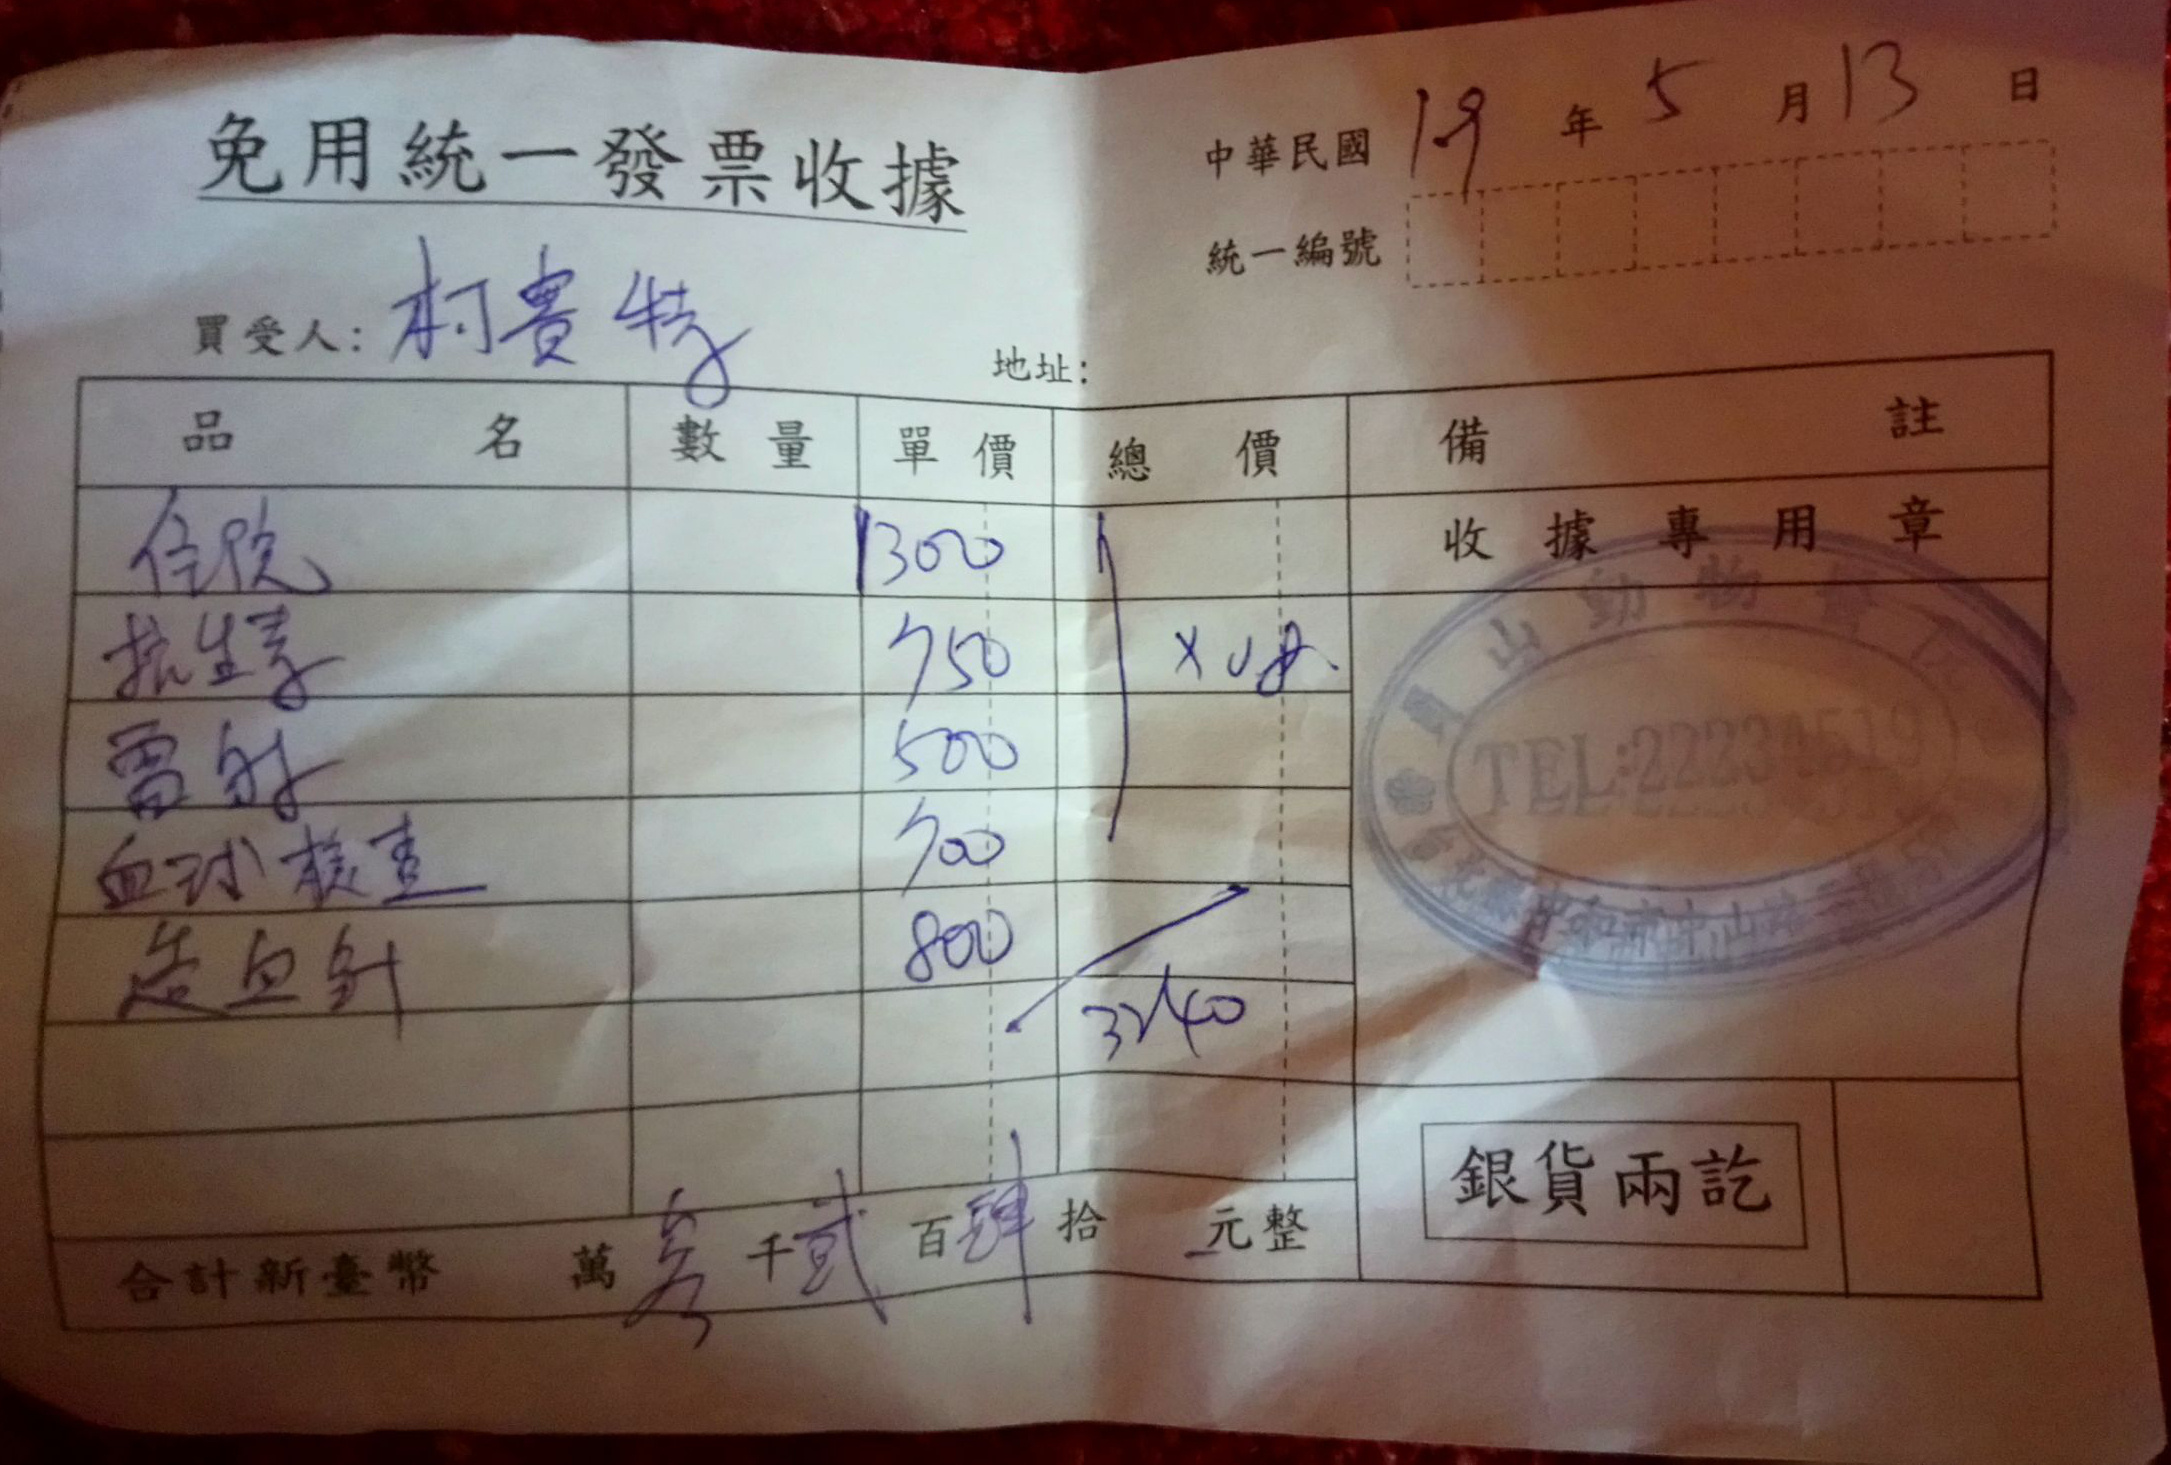 免用統一發票收據
中華民國 19 年 5 月 13 日
統一編號
買受人: 柯貴特
地址:
品名 數量 單價 總價 備註
住院 1300 收據專用章
抗生素 750
雷射 500
血球檢查 700
造血針 800
3240
山動物醫院
TEL:22234519
中和市中山路二段
合計新臺幣 萬 參 千 貳 百 肆 拾 元整
銀貨兩訖